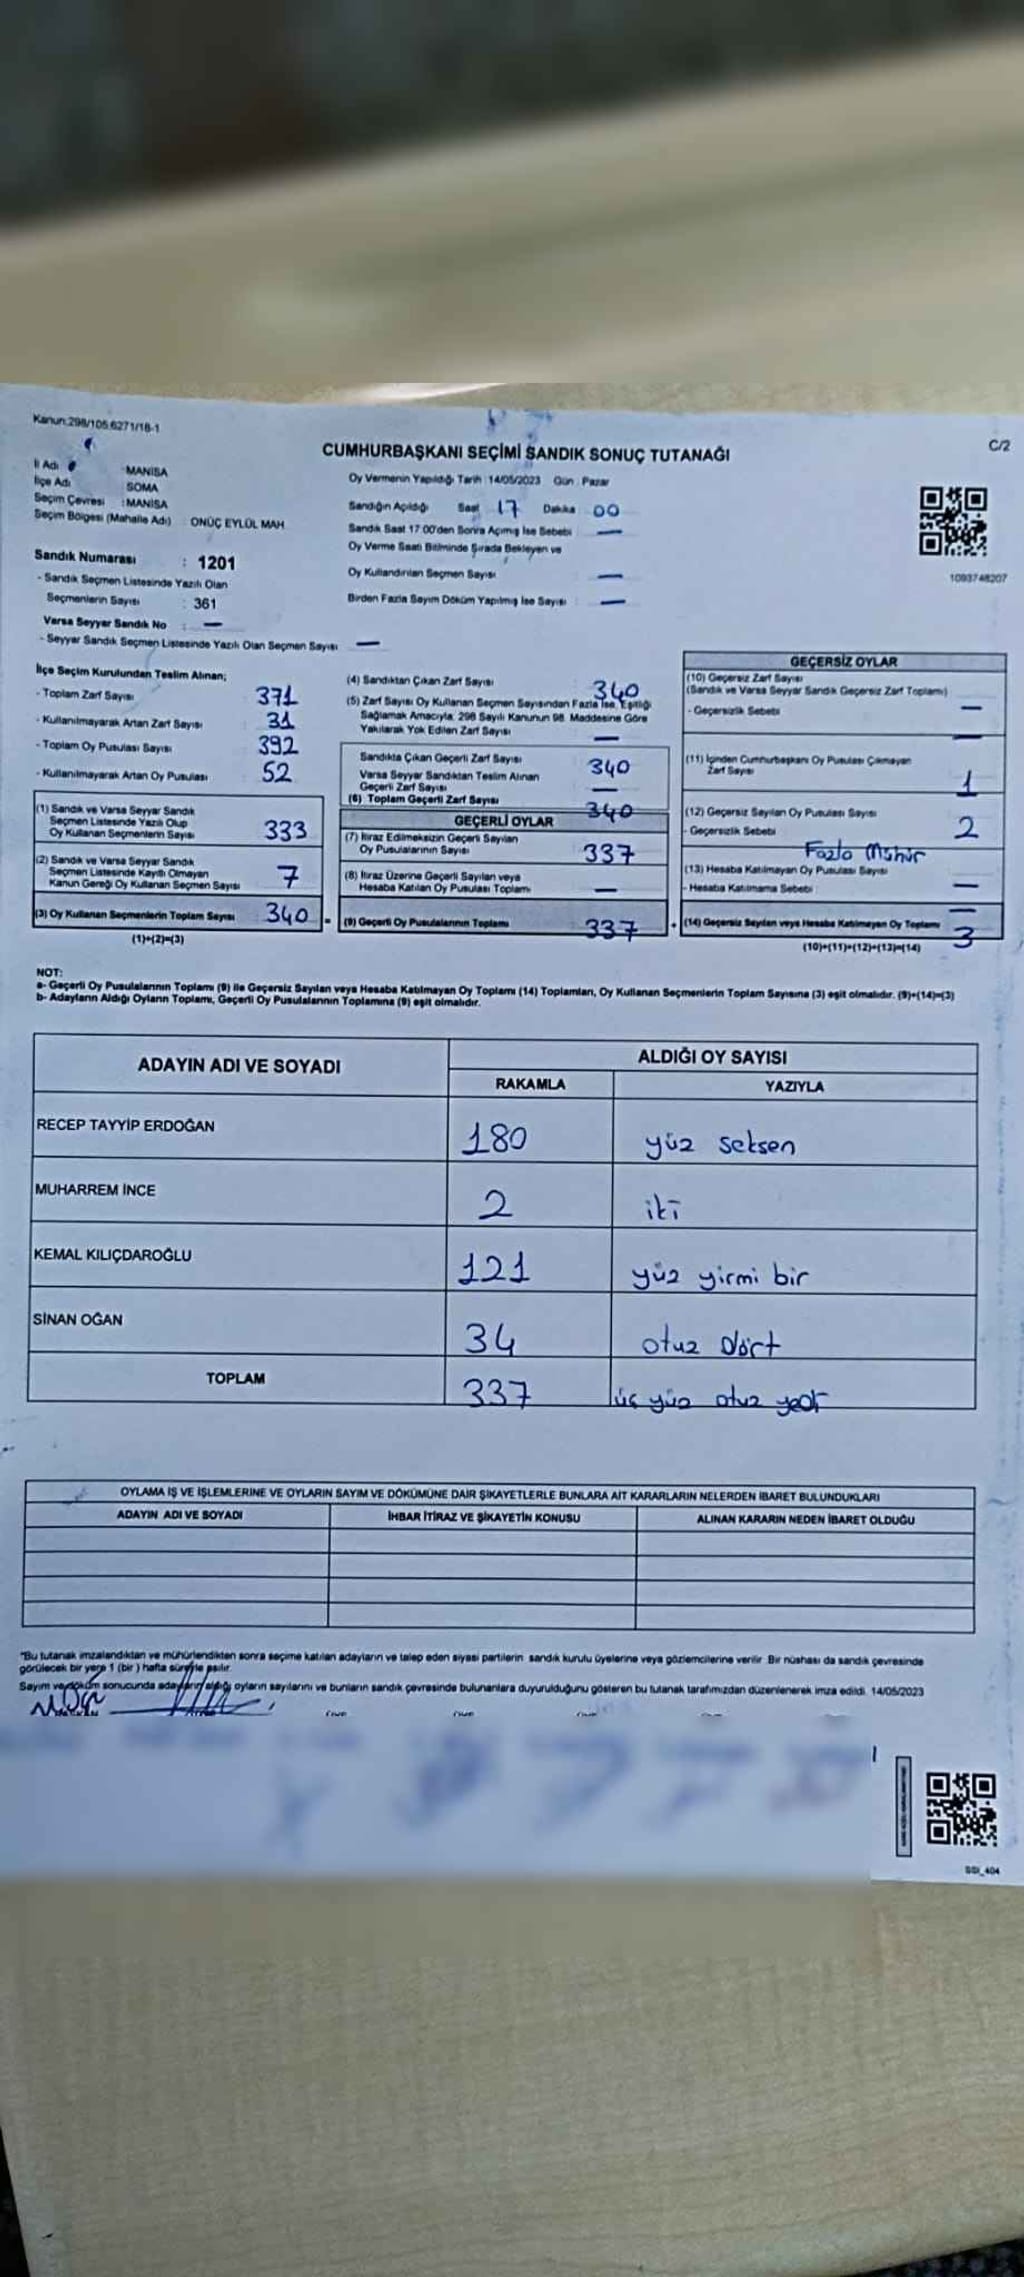 Kanun:298/105,6271/18-1
CUMHURBAŞKANI SEÇİMİ SANDIK SONUÇ TUTANAĞI
C/2
İl Adı : MANİSA
İlçe Adı : SOMA
Seçim Çevresi : MANİSA
Seçim Bölgesi (Mahalle Adı) : ONÜÇ EYLÜL MAH
Sandık Numarası : 1201
- Sandık Seçmen Listesinde Yazılı Olan
Seçmenlerin Sayısı : 361
Varsa Seyyar Sandık No : —
- Seyyar Sandık Seçmen Listesinde Yazılı Olan Seçmen Sayısı —
Oy Vermenin Yapıldığı Tarih : 14/05/2023 Gün : Pazar
Sandığın Açıldığı Saat 17 Dakika 00
Sandık Saat 17:00'den Sonra Açmış İse Sebebi : —
Oy Verme Saati Bitiminde Sırada Bekleyen ve
Oy Kullandırılan Seçmen Sayısı —
Birden Fazla Sayım Döküm Yapılmış İse Sayısı : —
1093748207
İlçe Seçim Kurulundan Teslim Alınan;
- Toplam Zarf Sayısı 371
- Kullanılmayarak Artan Zarf Sayısı 31
- Toplam Oy Pusulası Sayısı 392
- Kullanılmayarak Artan Oy Pusulası 52
(1) Sandık ve Varsa Seyyar Sandık
Seçmen Listesinde Yazılı Olup
Oy Kullanan Seçmenlerin Sayısı 333
(2) Sandık ve Varsa Seyyar Sandık
Seçmen Listesinde Kayıtlı Olmayan
Kanun Gereği Oy Kullanan Seçmen Sayısı 7
(3) Oy Kullanan Seçmenlerin Toplam Sayısı 340 =
(1)+(2)=(3)
(4) Sandıktan Çıkan Zarf Sayısı : 340
(5) Zarf Sayısı Oy Kullanan Seçmen Sayısından Fazla İse, Eşitliği
Sağlamak Amacıyla 298 Sayılı Kanunun 98. Maddesine Göre
Yakılarak Yok Edilen Zarf Sayısı —
Sandıkta Çıkan Geçerli Zarf Sayısı 340
Varsa Seyyar Sandıktan Teslim Alınan
Geçerli Zarf Sayısı —
(6) Toplam Geçerli Zarf Sayısı 340
GEÇERLİ OYLAR
(7) İtiraz Edilmeksizin Geçerli Sayılan
Oy Pusulalarının Sayısı 337
(8) İtiraz Üzerine Geçerli Sayılan veya
Hesaba Katılan Oy Pusulası Toplamı —
(9) Geçerli Oy Pusulalarının Toplamı 337 +
GEÇERSİZ OYLAR
(10) Geçersiz Zarf Sayısı
(Sandık ve Varsa Seyyar Sandık Geçersiz Zarf Toplamı) —
- Geçersizlik Sebebi —
(11) İçinden Cumhurbaşkanı Oy Pusulası Çıkmayan
Zarf Sayısı 1
(12) Geçersiz Sayılan Oy Pusulası Sayısı 2
- Geçersizlik Sebebi Fazla Mühür
(13) Hesaba Katılmayan Oy Pusulası Sayısı —
- Hesaba Katılmama Sebebi —
(14) Geçersiz Sayılan veya Hesaba Katılmayan Oy Toplamı 3
(10)+(11)+(12)+(13)=(14)
NOT:
a- Geçerli Oy Pusulalarının Toplamı (9) ile Geçersiz Sayılan veya Hesaba Katılmayan Oy Toplamı (14) Toplamları, Oy Kullanan Seçmenlerin Toplam Sayısına (3) eşit olmalıdır. (9)+(14)=(3)
b- Adayların Aldığı Oyların Toplamı, Geçerli Oy Pusulalarının Toplamına (9) eşit olmalıdır.
ADAYIN ADI VE SOYADI
ALDIĞI OY SAYISI
RAKAMLA YAZIYLA
RECEP TAYYİP ERDOĞAN 180 yüz seksen
MUHARREM İNCE 2 iki
KEMAL KILIÇDAROĞLU 121 yüz yirmi bir
SİNAN OĞAN 34 otuz dört
TOPLAM 337 üç yüz otuz yedi
OYLAMA İŞ VE İŞLEMLERİNE VE OYLARIN SAYIM VE DÖKÜMÜNE DAİR ŞİKAYETLERLE BUNLARA AİT KARARLARIN NELERDEN İBARET BULUNDUKLARI
ADAYIN ADI VE SOYADI İHBAR İTİRAZ VE ŞİKAYETİN KONUSU ALINAN KARARIN NEDEN İBARET OLDUĞU
"Bu tutanak imzalandıktan ve mühürlendikten sonra seçime katılan adayların ve talep eden siyasi partilerin sandık kurulu üyelerine veya gözlemcilerine verilir. Bir nüshası da sandık çevresinde
görülecek bir yere 1 (bir) hafta süreyle asılır.
Sayım ve döküm sonucunda adayların aldığı oyların sayılarını ve bunların sandık çevresinde bulunanlara duyurulduğunu gösteren bu tutanak tarafımızdan düzenlenerek imza edildi. 14/05/2023
SDI_404